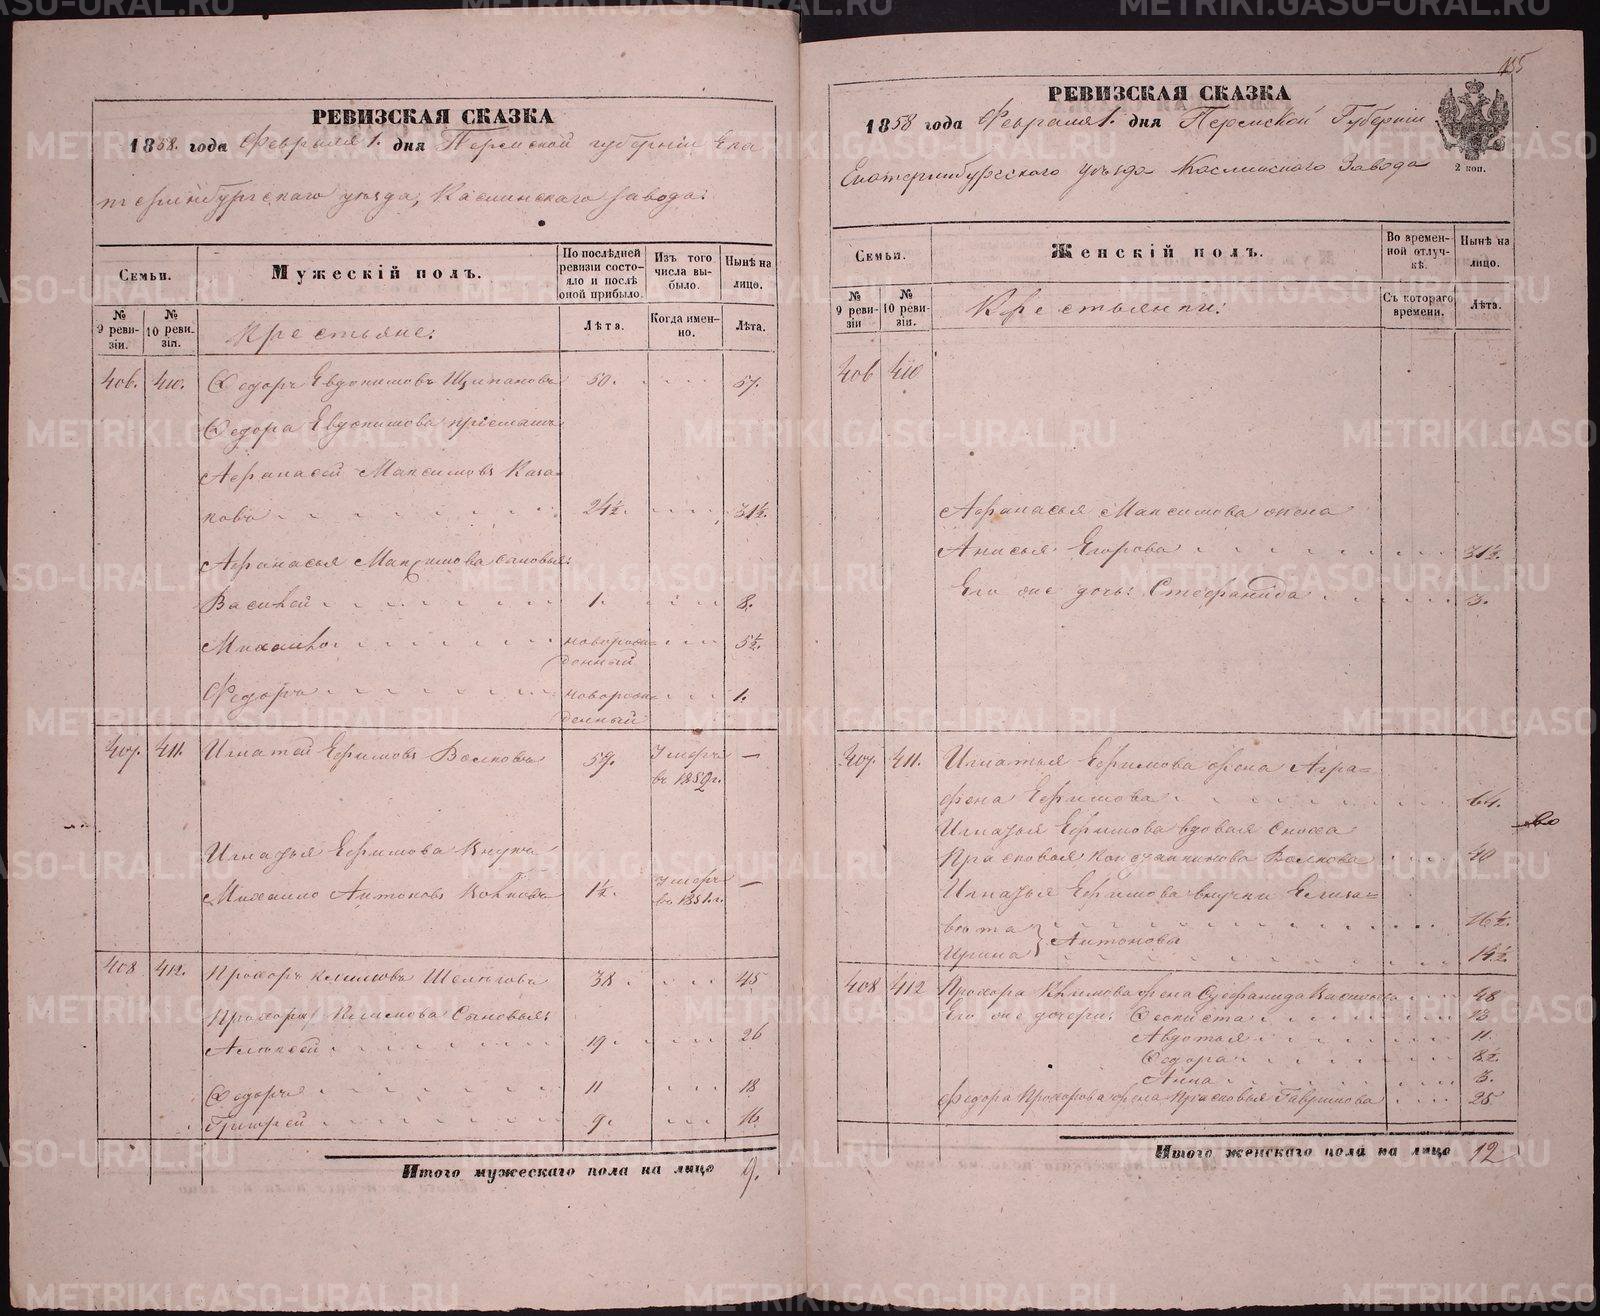 РЕВИЗСКАЯ СКАЗКА
1858. года Февраля 1. дня Пермской губернiи Ека
теринбургскаго уѣзда, Каслинскаго завода:
Семьи.
Мужескiй полъ.
По послѣдней ревизiи состо-
яло и послѣ
оной прибыло.
Изъ того
числа вы-
было.
Нынѣ на
лицо.
№
9 реви-
зiи.
№
10 реви-
зiи.
Крестьяне:
Лѣта.
Когда имен-
но.
Лѣта.
406. 410. Федоръ Евдокимовъ Щипановъ 50. 57.
Федора Евдокимова прiемышъ
Афанасей Максимовъ Каза-
ковъ 24½. 31½.
Афанасья Максимова сыновья:
Василей 1. 8.
Михайло новорож-
денный 5½.
Федоръ новорож-
денный 1.
407. 411. Игнатей Ефимовъ Волковъ 59. Умеръ
въ 1852 г. —
Игнатья Ефимова внукъ
Михайло Антоновъ Волковъ 1½. Умеръ
въ 1851. г. —
408 412. Прохоръ Климовъ 38 45
Прохора Климова Сыновья:
Алексей 19 26
Федоръ 11 18
9. 16.
Итого мужескаго пола на лицо 9.
135
РЕВИЗСКАЯ СКАЗКА
1858 года Февраля 1. дня Пермской Губернiи
Екатеринбургскаго уѣзда Каслинскаго Завода
2 коп.
Семьи.
Женскiй полъ.
Во времен-
ной отлуч-
кѣ.
Нынѣ на
лицо.
№
9 реви-
зiи
№
10 реви-
зiи.
Крестьянки:
Съ котораго
времени.
Лѣта.
406 410
Афанасья Максимова жена
Анисья Егорова 31½.
Его же дочь: Стефанида 3.
407. 411. Игнатья Ефимова жена Агра-
фена Ефимова 64.
Игнатья Ефимова вдовая сноха
Прасковья Константинова Волкова 40
Игнатья Ефимова внучки Елиза-
вета 16½.
Антоновы
Ирина 14½.
408 412 Прохора Климова жена Стефанида Васильева 48
Его же дочери: Феоктиста 13
Авдотья 11.
Федора 8½.
Анна 3.
Федора Прохорова жена Прасковья Гаврилова 25
Итого женскаго пола на лицо 12
METRIKI.GASO-URAL.RU